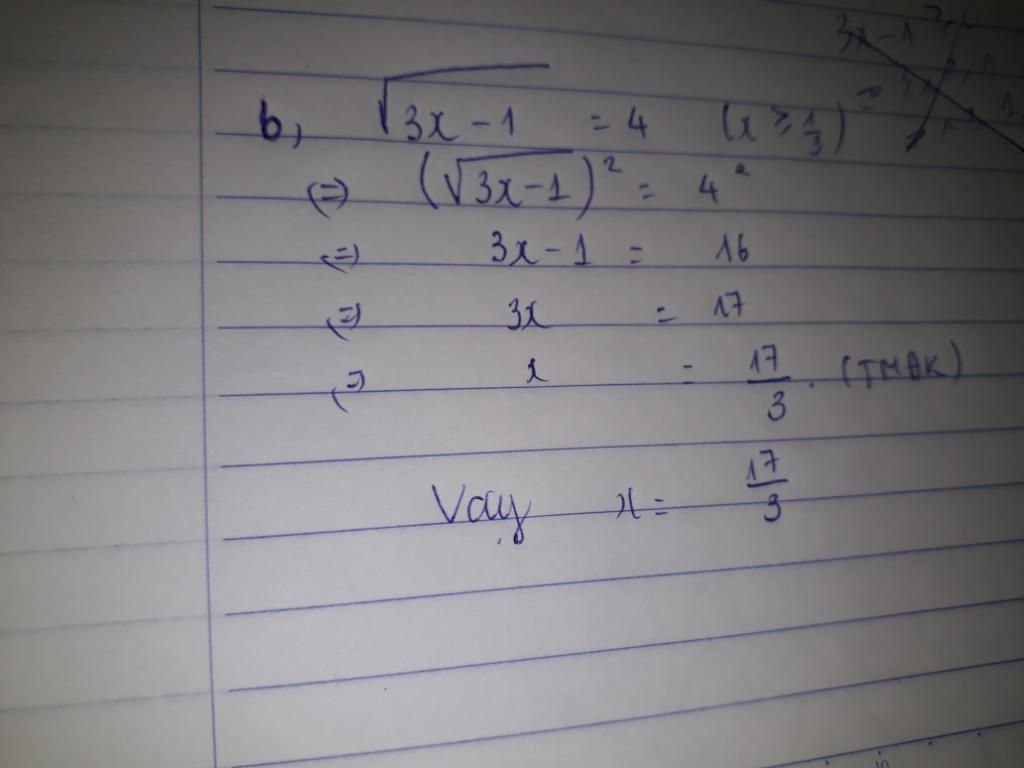 b, √(3x - 1) = 4 (x ≥ 1/3)
(=) (√(3x - 1))² = 4²
(=) 3x - 1 = 16
(=) 3x = 17
(=) x = 17/3. (TMĐK)
Vậy x = 17/3